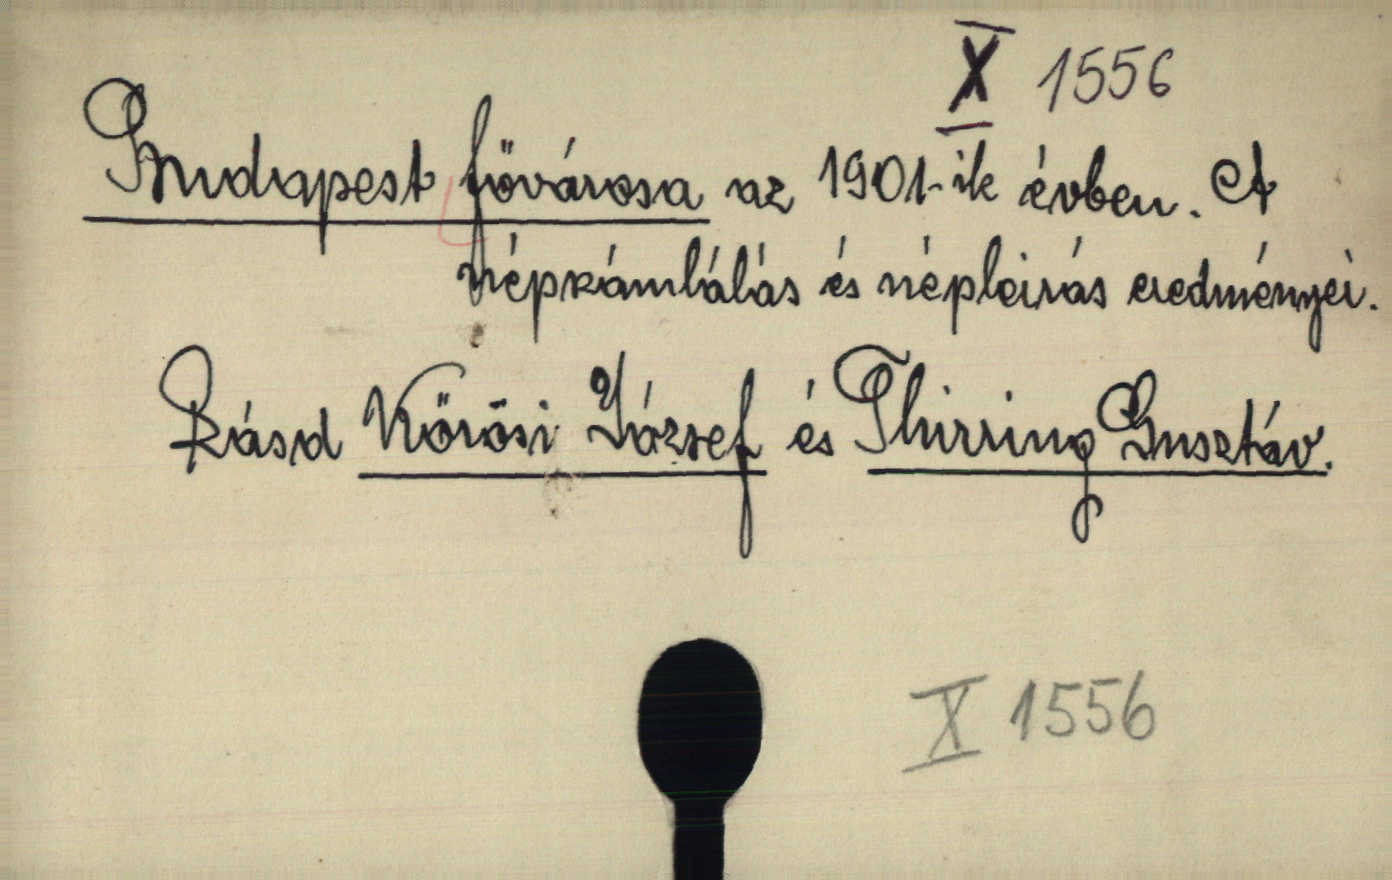 X 1556
Budapest fővárosa az 1901-ik évben. A
népszámlálás és népleirás eredményei.
Lásd Kőrösi József és Thirring Gusztáv.
X 1556